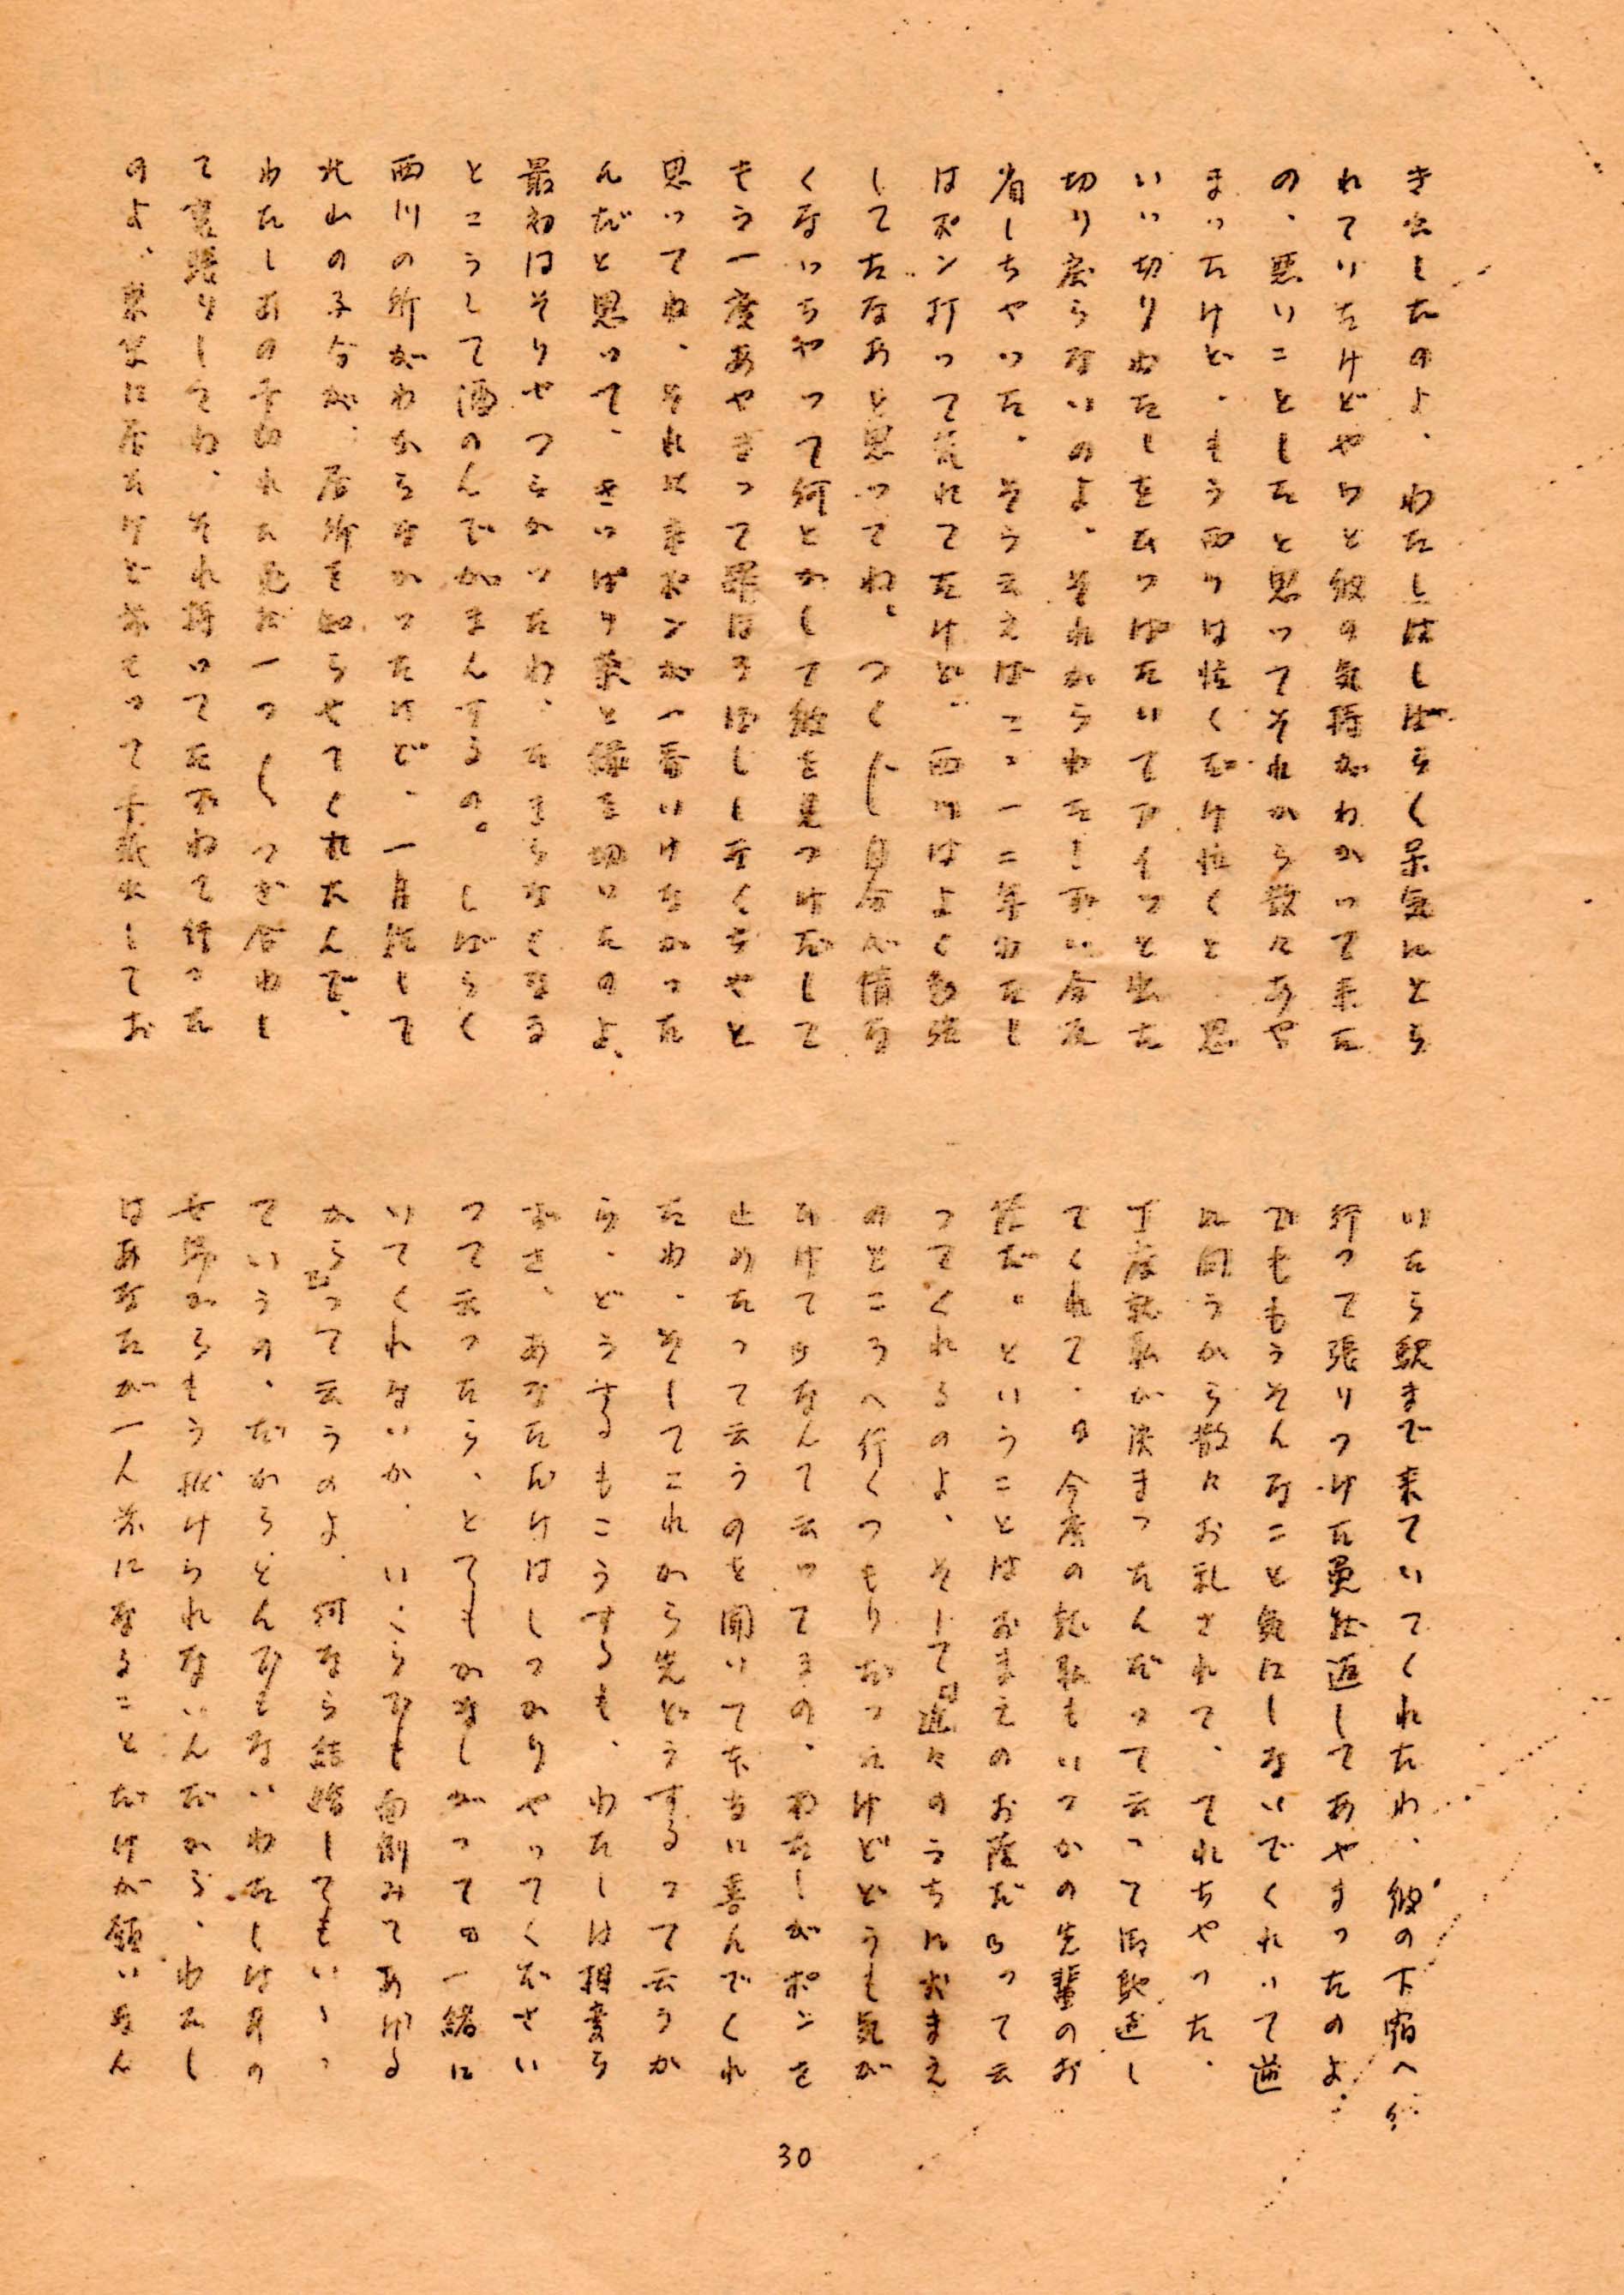 き出したのよ、わたしはしばらく呆気にとら
れていたけどやっと彼の気持がわかって来た
の、悪いことしたと思ってそれから散々あや
まったけど、もう西川は怪くだけ怪くと思
いい切りわたしをひっぱたいてプイッと出た
切り戻らないのよ。それからわたし取い合反
省しちゃった。そう云えばここ一二年わたし
はポン打って荒れてたけど、西川はよく勉強
してたなあと思ってね。つくづく自分が情な
くないっちゃって何とかして彼を見つけだして
もう一度あやまって罪ほろぼししなくちゃと
思ってね、それにはポンが一番いけなかった
んだと思って、さっぱり薬と縁を切ったのよ、
最初はそりゃつらかったわ、たまらなくなる
とこうして酒のんでがまんするの。しばらく
西川の所がわからなかったけど、一月程して
北山の子分が、居所を知らせてくれたんで、
わたしあの千切れた免状一つ一つつぎ合わし
て裏張りしてね、それ持ってたずねて行った
のよ、東京に居たけど前もって手紙出してお
いたら駅まで来ていてくれたわ、彼の下宿へ
行って張りつけた免状返してあやまったのよ、
でももうそんなこと気にしないでくれって逆
に向うから散々お礼されて、てれちゃった、
丁度就職が決まったんだって云って御馳走し
てくれて、『今度の就職もいつかの先輩のお
蔭だ。ということはおまえのお蔭だ』って云
ってくれるのよ、そして『近々のうちにおまえ
のところへ行くつもりだったけどどうも気が
ひけて』なんて云ってるの、わたしがポンを
止めたって云うのを聞いて本当に喜んでくれ
たわ、そしてこれから先どうするって云うか
ら、どうするもこうするも、わたしは相変ら
ずさ、あなただけはしっかりやってください
って云ったら、とてもかなしがって『一緒に
いてくれないか、いくらでも面倒みてあげる
から』って云うのよ、何なら結婚してもいゝっ
ていうの、だからとんでもない、わたしは身の
女郎からもう抜けられないんだから、わたし
はあなたが一人前になることだけが願いなん
30